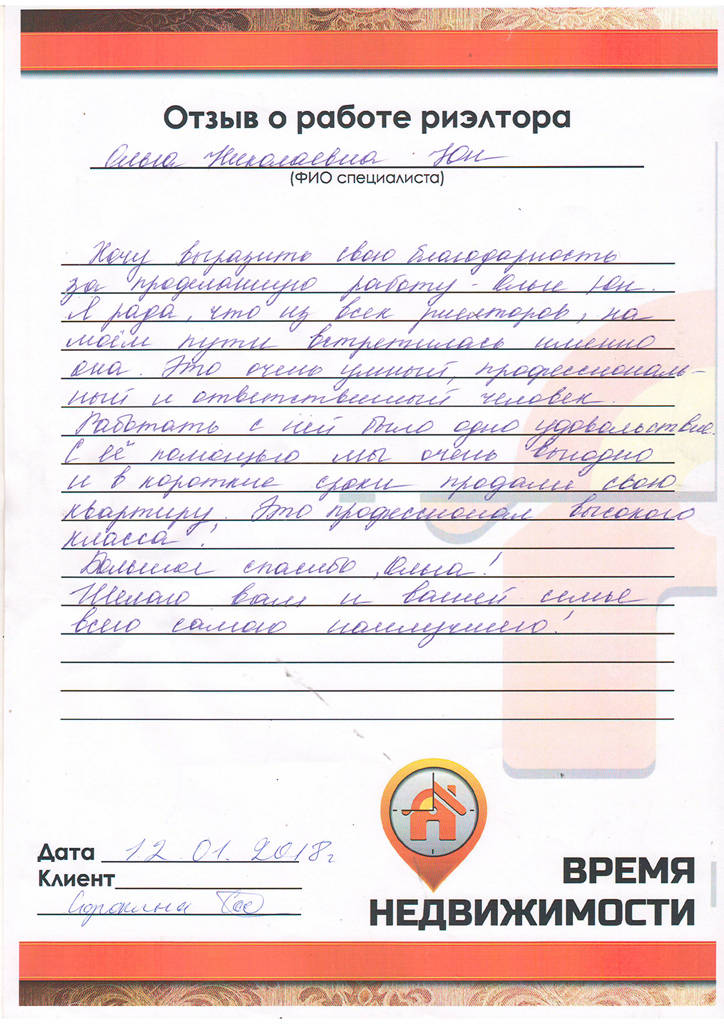 Отзыв о работе риэлтора
Ольга Николаевна Юн
(ФИО специалиста)
Хочу выразить свою благодарность
за проделанную работу - Ольге Юн.
Я рада, что из всех риелторов, на
моём пути встретилась именно
она. Это очень умный, профессиональ-
ный и ответственный человек.
Работать с ней было одно удовольствие.
С её помощью мы очень выгодно
и в короткие сроки продали свою
квартиру. Это профессионал высокого
класса!
Большое спасибо, Ольга!
Желаю вам и вашей семье
всего самого наилучшего!
Дата 12.01.2018г
Клиент
Сорокина
ВРЕМЯ
НЕДВИЖИМОСТИ